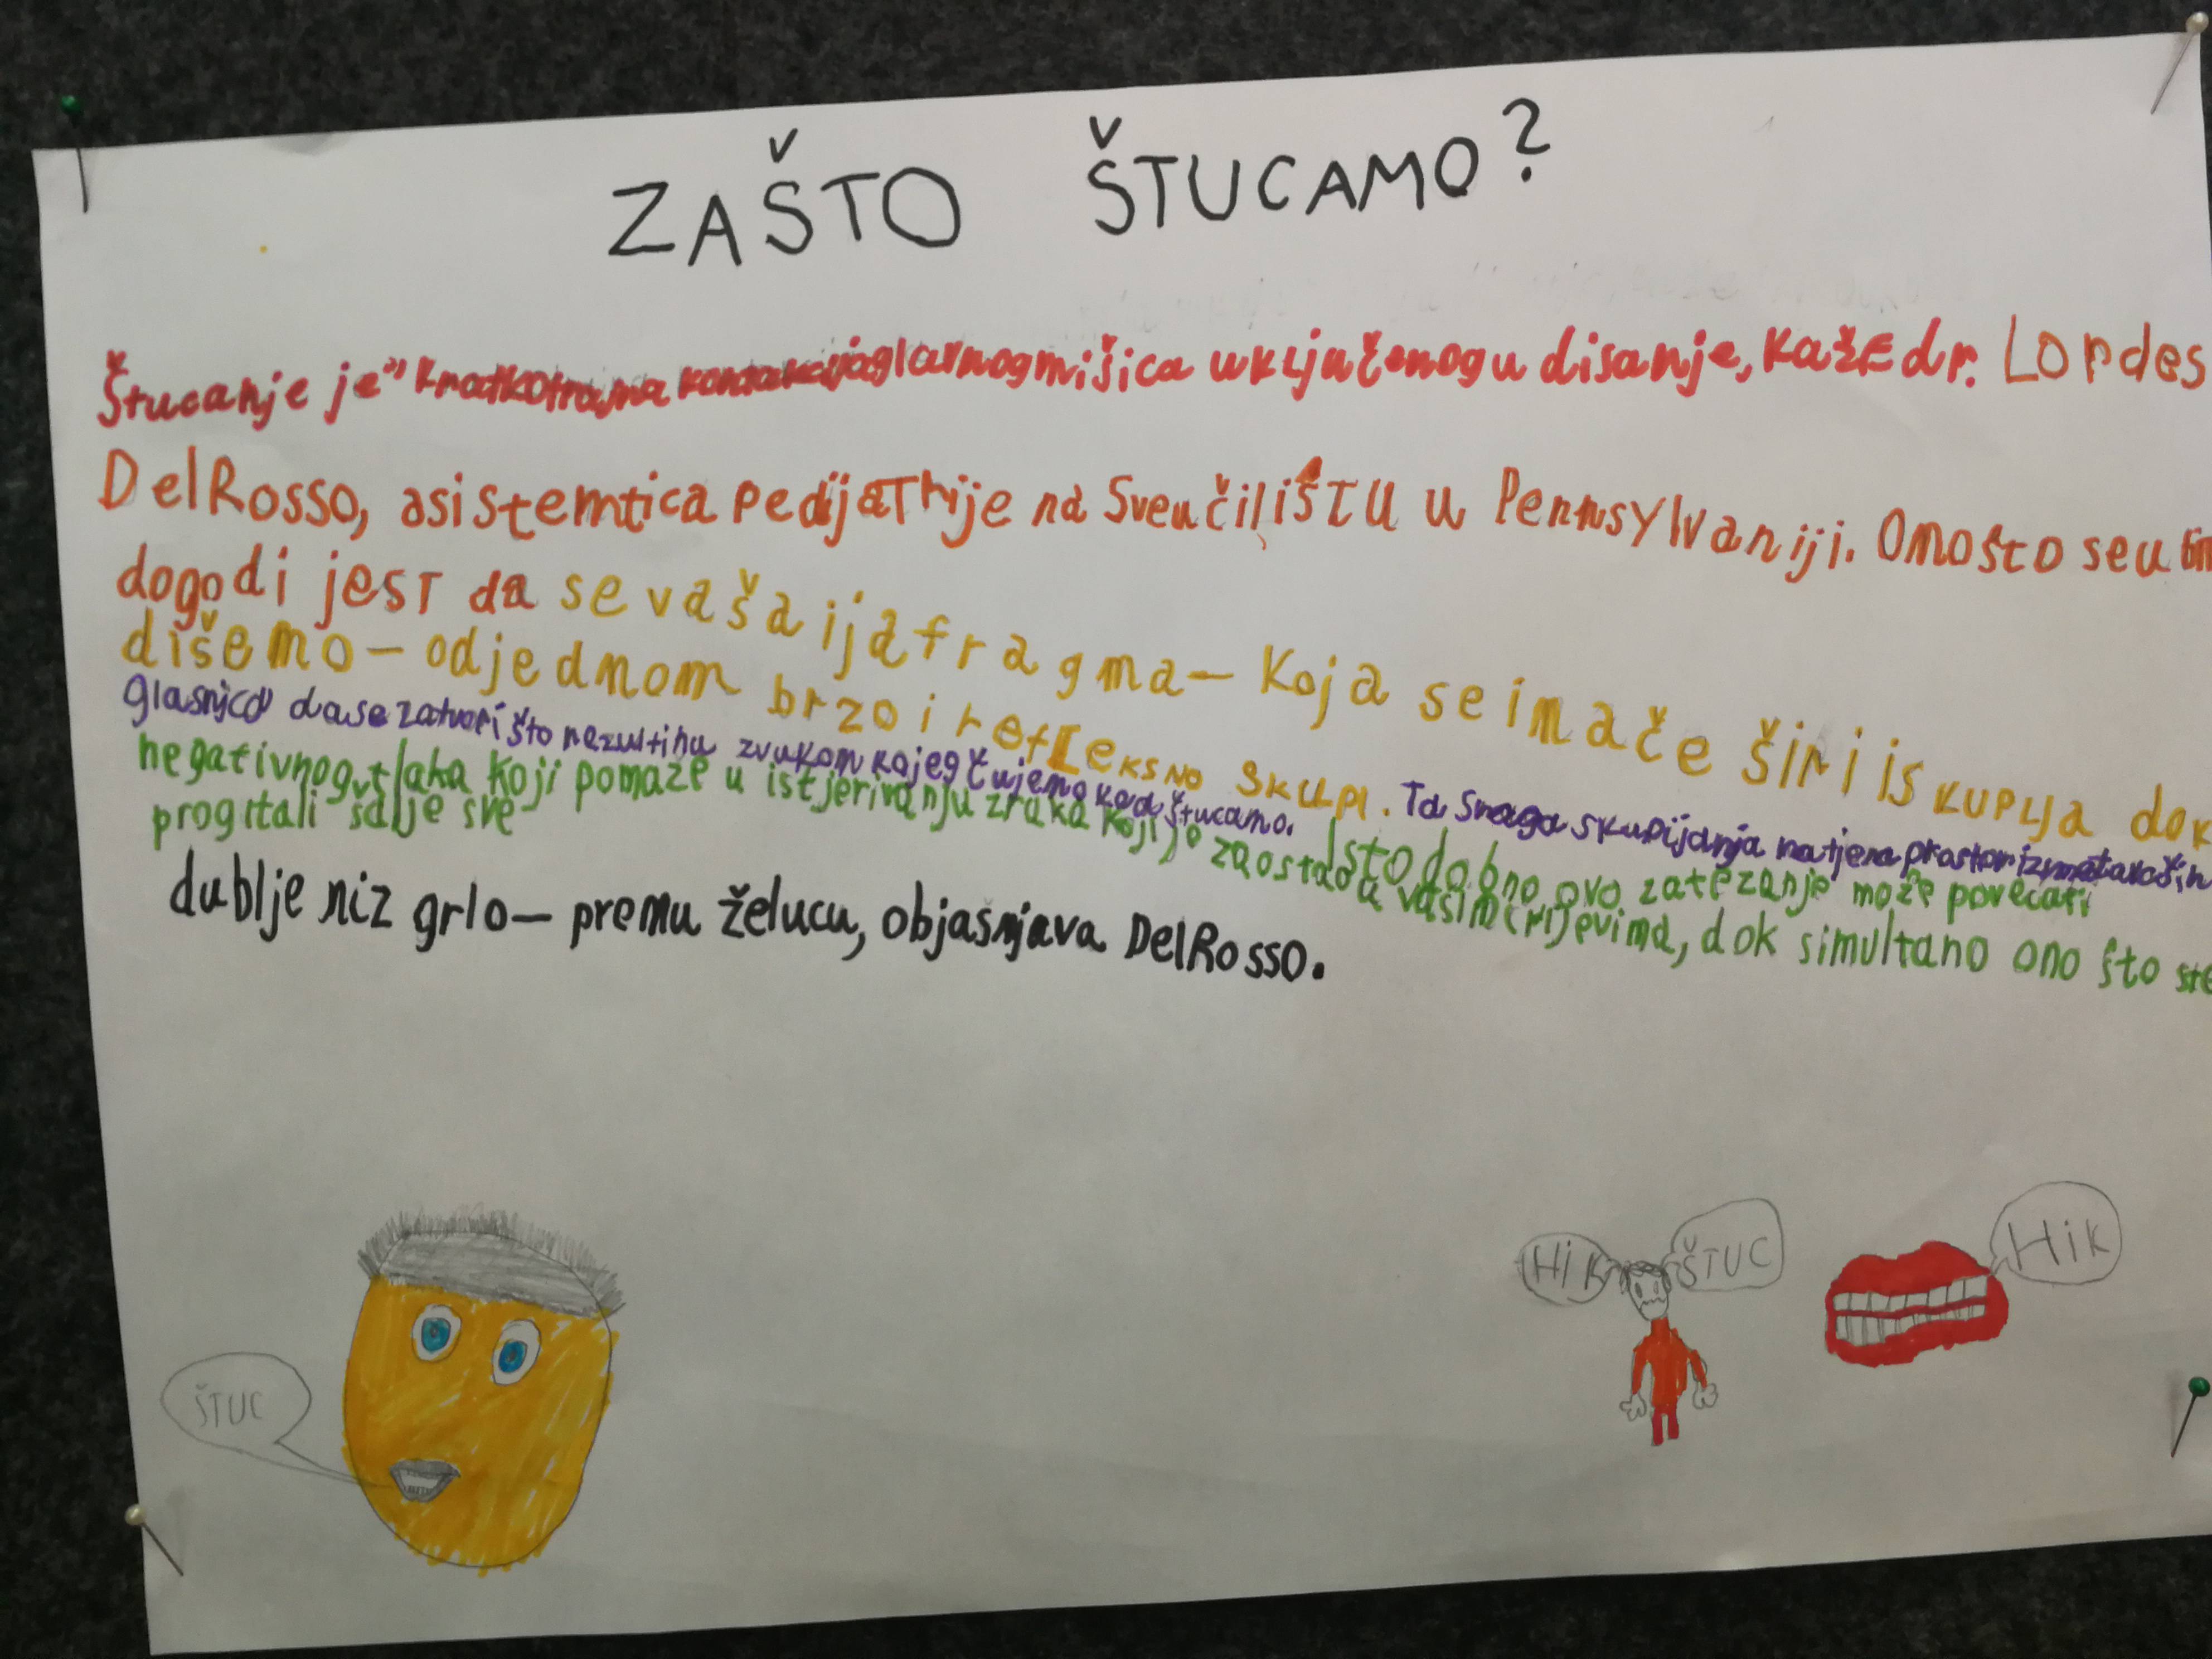 ZAŠTO ŠTUCAMO?
Štucanje je" kratkotrajna kontrakcija glavnog mišica uključenog u disanje, kažE dr. Lordes
DelRosso, asistemtica pedijaTrije na SveučilišTU u Pennsylvaniji. Omošto se u
dogodi jesT da se vaša ijafragma- koja se imače širi i skuplja dok
dišemo - odjednom brzo i refleksno skupi. Ta snaga skupijanja natjera prostor između
glasnica da se zatvori što rezultira zvukom kojeg čujemo kad štucamo. Istodobno ovo zatezanje može povećati
negativnog tlaka koji pomaže u istjerivanju zraka koji je zaostao u vašim crijevima, dok simultano ono što ste
progitali šalje sve
dublje niz grlo- premu želucu, objašnjava DelRosso.
ŠTUC
HiK
ŠTUC
Hik